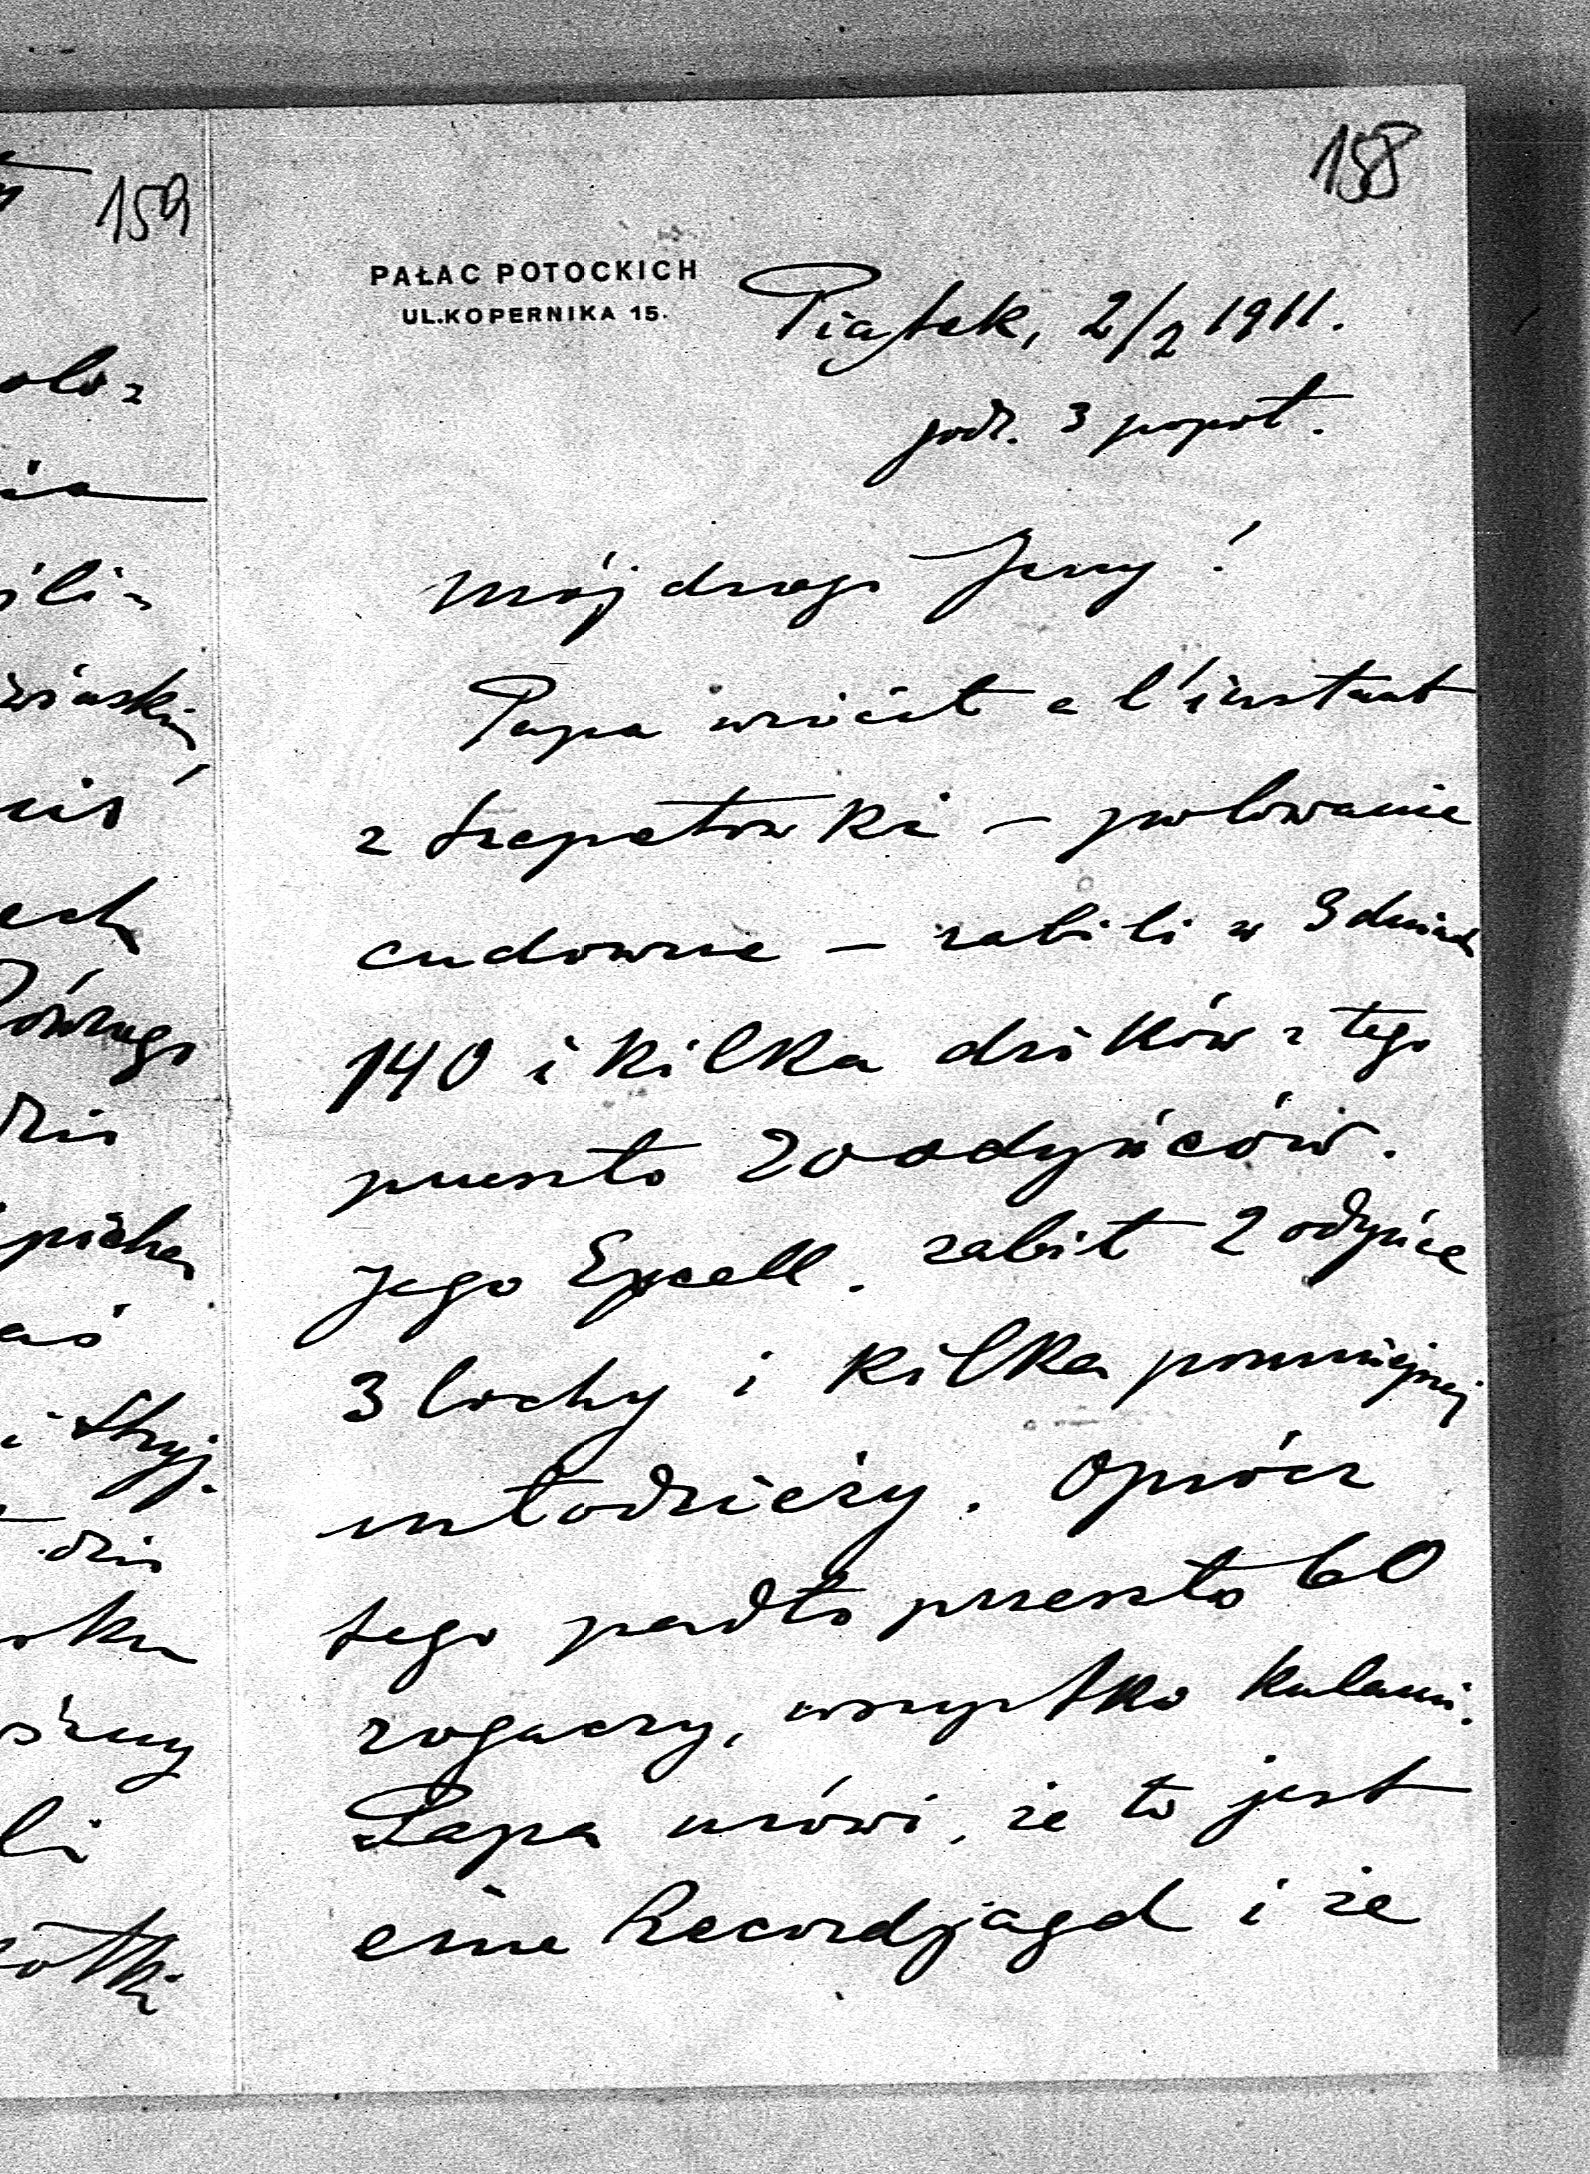 159
olo-
ia
ili-
uś
ech
Równego
i Stryj.
dziś
li
158
PAŁAC POTOCKICH
UL.KOPERNIKA 15.
Piątek, 2/2 1911.
godz. 3 popoł.
Mój drogi Jerzy!
Papa wrócił a l'instant
z Szepetówki – polowanie
cudowne – zabili w 3 dniach
140 i kilka dzików z tego
przeszło 20 odyńców.
Jego Excell. zabił 2 odyńce
3 lochy i kilka pomniejszej
młodzieży. Oprócz
tego padło przeszło 60
rogaczy, wszystko kulami.
Papa mówi, że to jest
eine Recordjagd i że